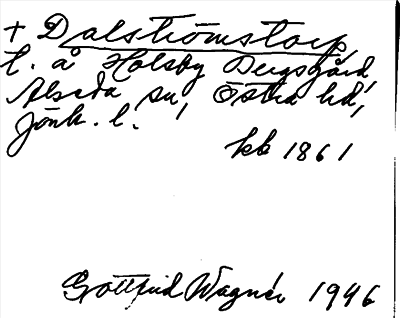 + Dalströmstorp,
t. å Holsby Bergsgård,
Alseda sn, Östra hd,
Jönk. l.
kb 1861
Gottfrid Wagnér 1946